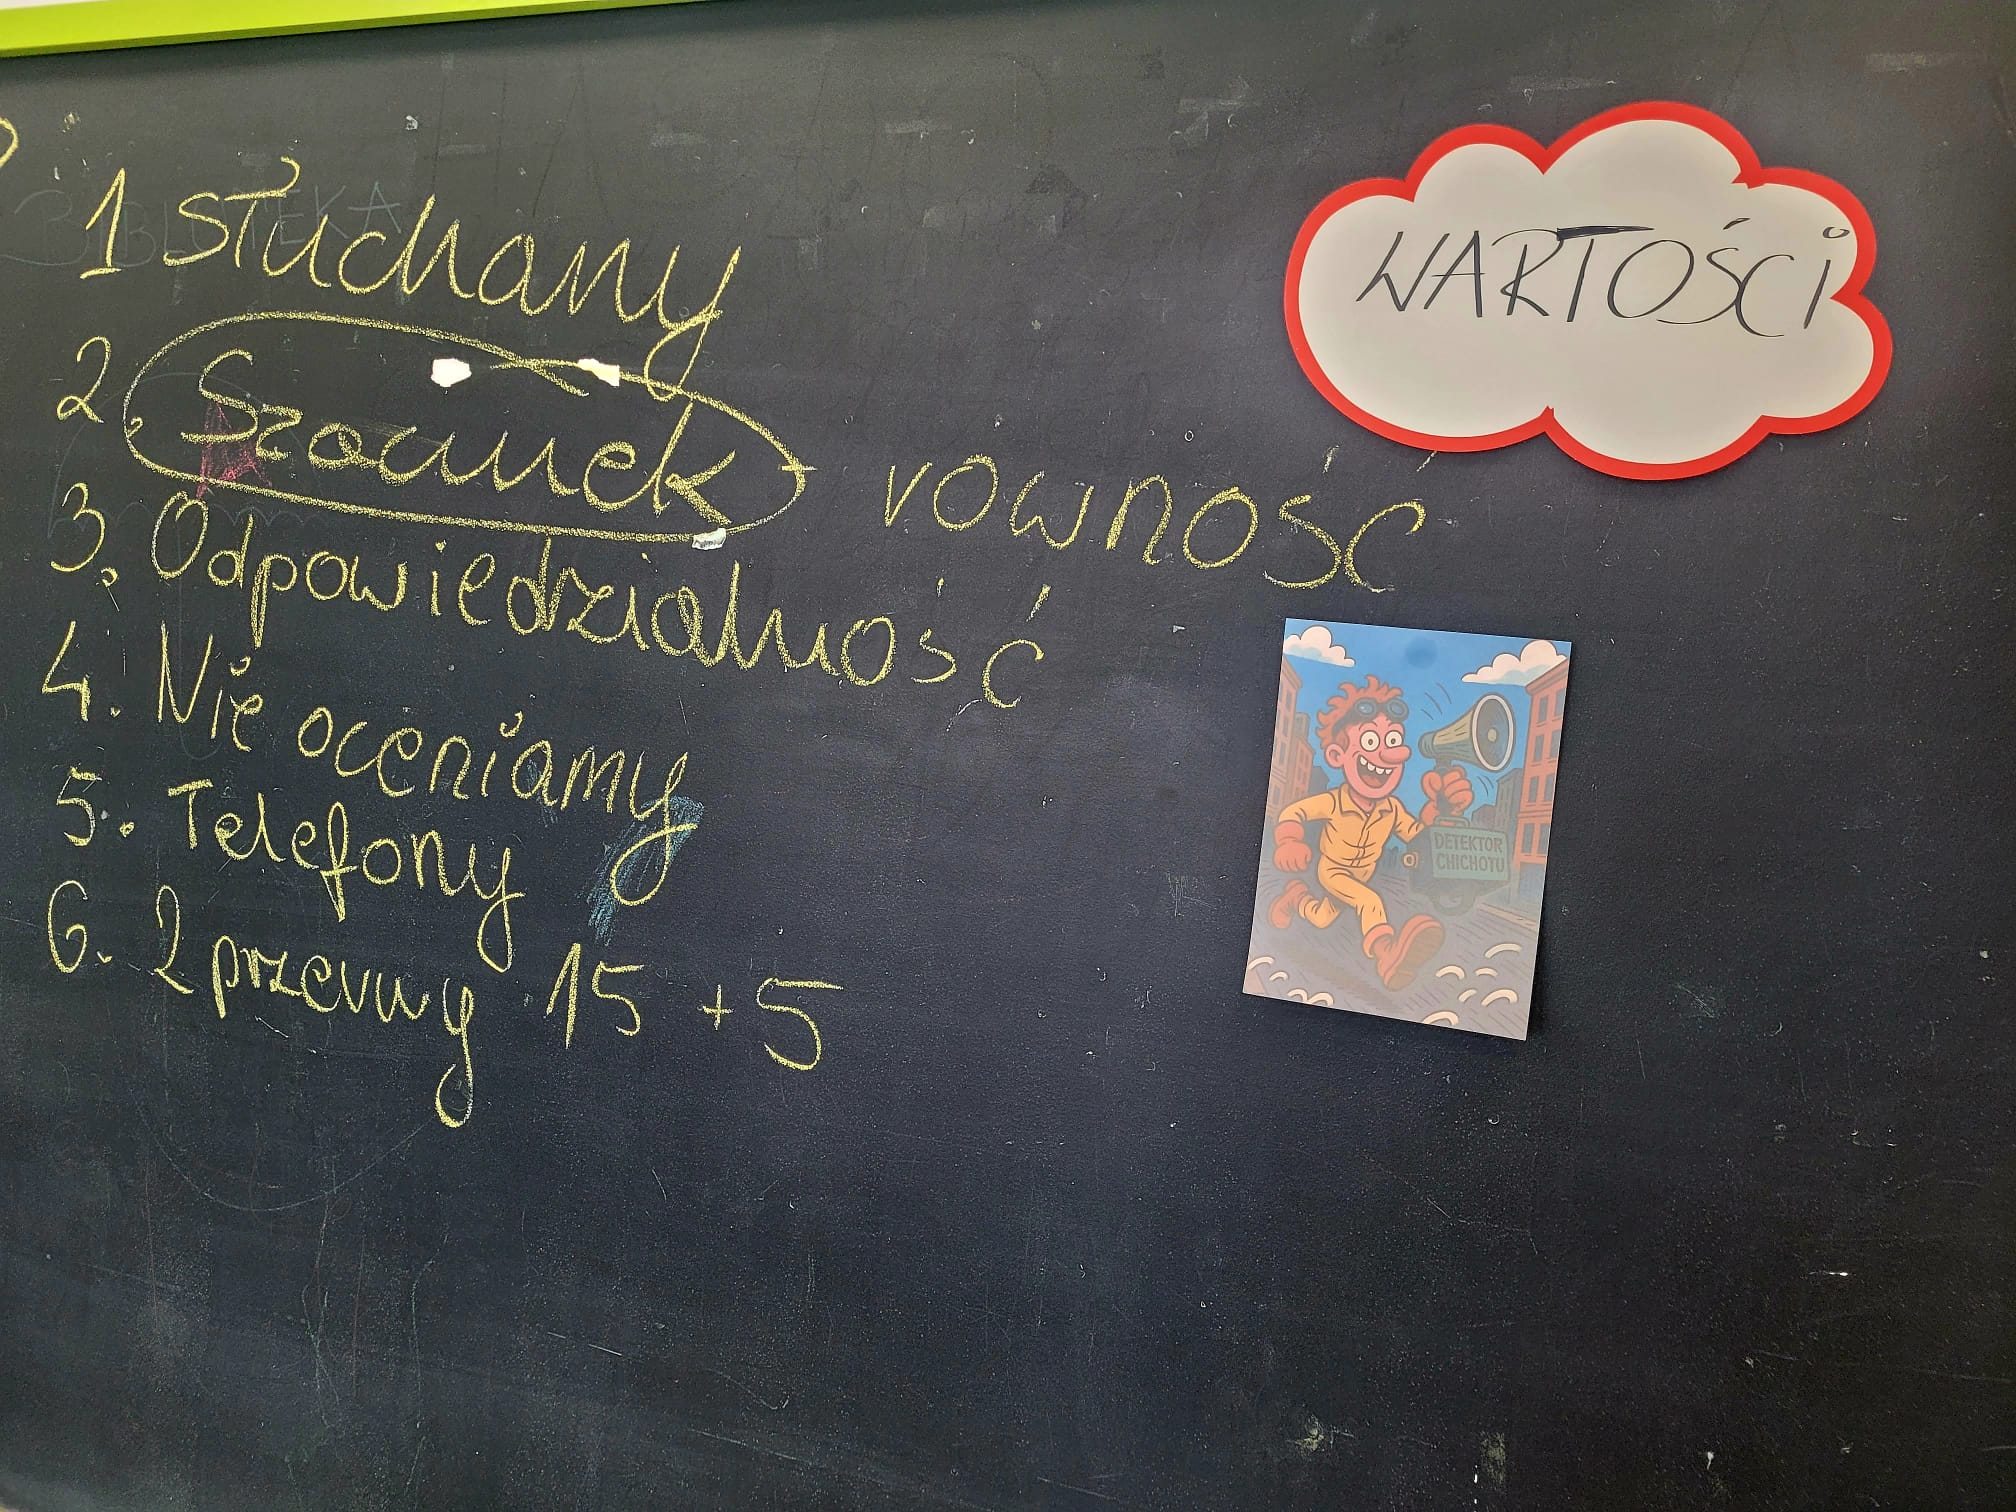 1 słuchamy
2. Szacunek - równość
3. Odpowiedzialność
4. Nie oceniamy
5. Telefony
6. 2 przerwy 15 + 5
WARTOŚCI
DETEKTOR
CHICHOTU
BIBLIOTEKA